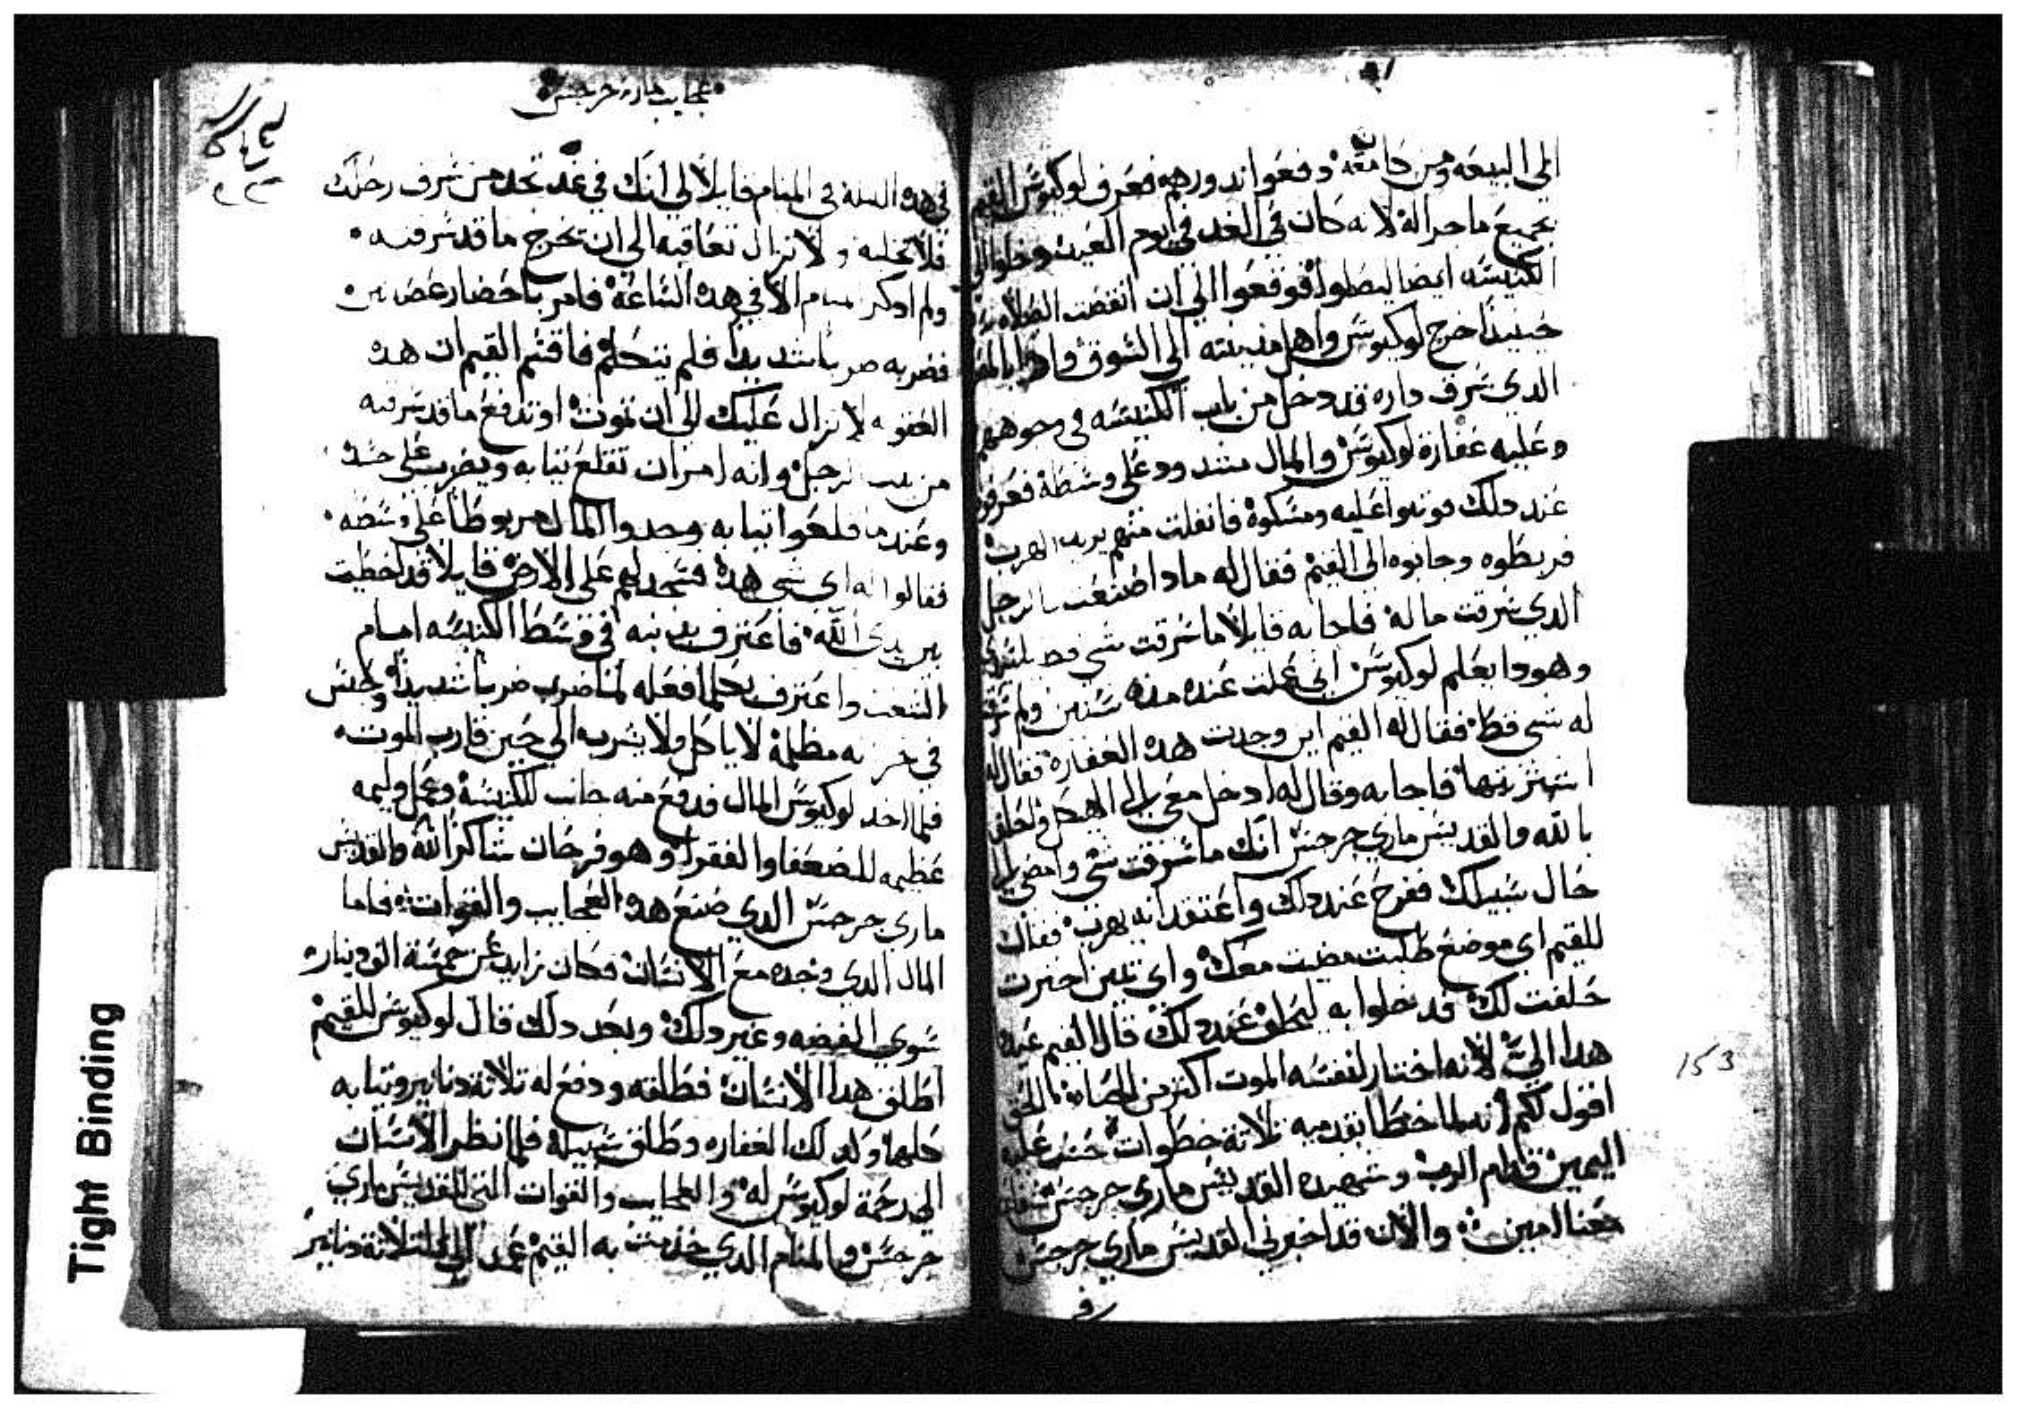 الي البيعه ومن كان معه دفعوا ندورهم فعرف لوكيوس القيم
بجميع ماجرا له لانه كان في الغد في يوم العيد دخلوا الي
الكنيسه ايضا ليصلوا فوقفوا الي ان انقضت الصلاه
حينيدا خرج لوكيوس واهل مدينته الي السوق وادا
الدي سرق داره قد دخل من باب الكنيسه في وجوههم
وعليه غفارة لوكيوس والمال مشدود علي وسطه فعرفوا
عند دلك فوتبوا عليه ومسكوه فانفلت منهم يريد الهرب
فربطوه وجابوه الي القيم فقال له مادا اصنعت بالرجل
الدي سرقت ماله فاجابه قايلا ما سرقت شي قط
وهودا يعلم لوكيوس اني عملت عنده مده سنين ولم
له شي قط فقال له القيم اين وجدت هده الغفاره فقال له
اشتريتها فاجابه وقال له ادخل معي الي الهيكل واحلف
بالله والقديس ماري جرجس انك ما سرقت شي وامضي الي
حال سبيلك ففرح عند دلك واعتقد انه يهرب فقال
للقيم اي موضع طلبت مضيت معك واي يمين اخترت
حلفت لك قد دخلوا به ليحلف عند دلك قال القيم
هدا الي لانه اختار لنفسه الموت اكتر من الحياه الحق
اقول لكم انه لما اخطا بقدميه تلاتة خطوات
اليمين قدام الرب وشهيده القديس ماري جرجس
معنا امين والان قد اخبرني القديس ماري جرجس
153
عجايب ماري جرجس
في هده اليله في المنام قايلا لي انك في غد تجد من سرق رحلك
فلا تخليه ولا تزال تعاقبه الي ان تخرج ما قد سرقه
ولم ادكر المنام الا في هده الساعه فامر باحضار
فضربه ضربا شديدا فلم يتكلم فاقسم القيم ان هده
العقوبه لا تزال عليك الي ان تموت او تدفع ما قد سرقته
من بيت الرجل وانه امر ان تقلع تيابه ويضرب علي جسده
وعندما قلعوا تيابه وجدوا المال مربوطا علي وسطه
فقالوا له اي شي هدا فسجد لهم علي الارض قايلا قد اخطيت
بين يدي الله فاعترف بدنبه في وسط الكنيسه امام
الشعب واعترف بكلما فعله لما ضرب ضربا شديدا وحبس
في مظلمه لا ياكل ولا يشرب الي حين قارب الموت
فلما اخد لوكيوس المال قدفع منه جانب للكنيسه وعمل وليمه
عظيمه للضعفا والفقرا وهو فرحان شاكرا لله والقديس
ماري جرجس الدي صنع هده العجايب والقوات فاما
المال الدي وجده مع الانسان فكان زايد عن خمسة الاف دينار
سوي الفضه وغير دلك وبعد دلك قال لوكيوس للقيم
اطلق هدا الانسان فطلقه ودفع له تلاتة دنانير وتيابه
كلها وكدلك الغفاره وطلق سبيله فلما نظر الانسان
الي رحمة لوكيوس له والعجايب والقوات التي للقديس ماري
جرجس والمنام الدي به القيم عمد الي التلاتة دنانير
Tight Binding